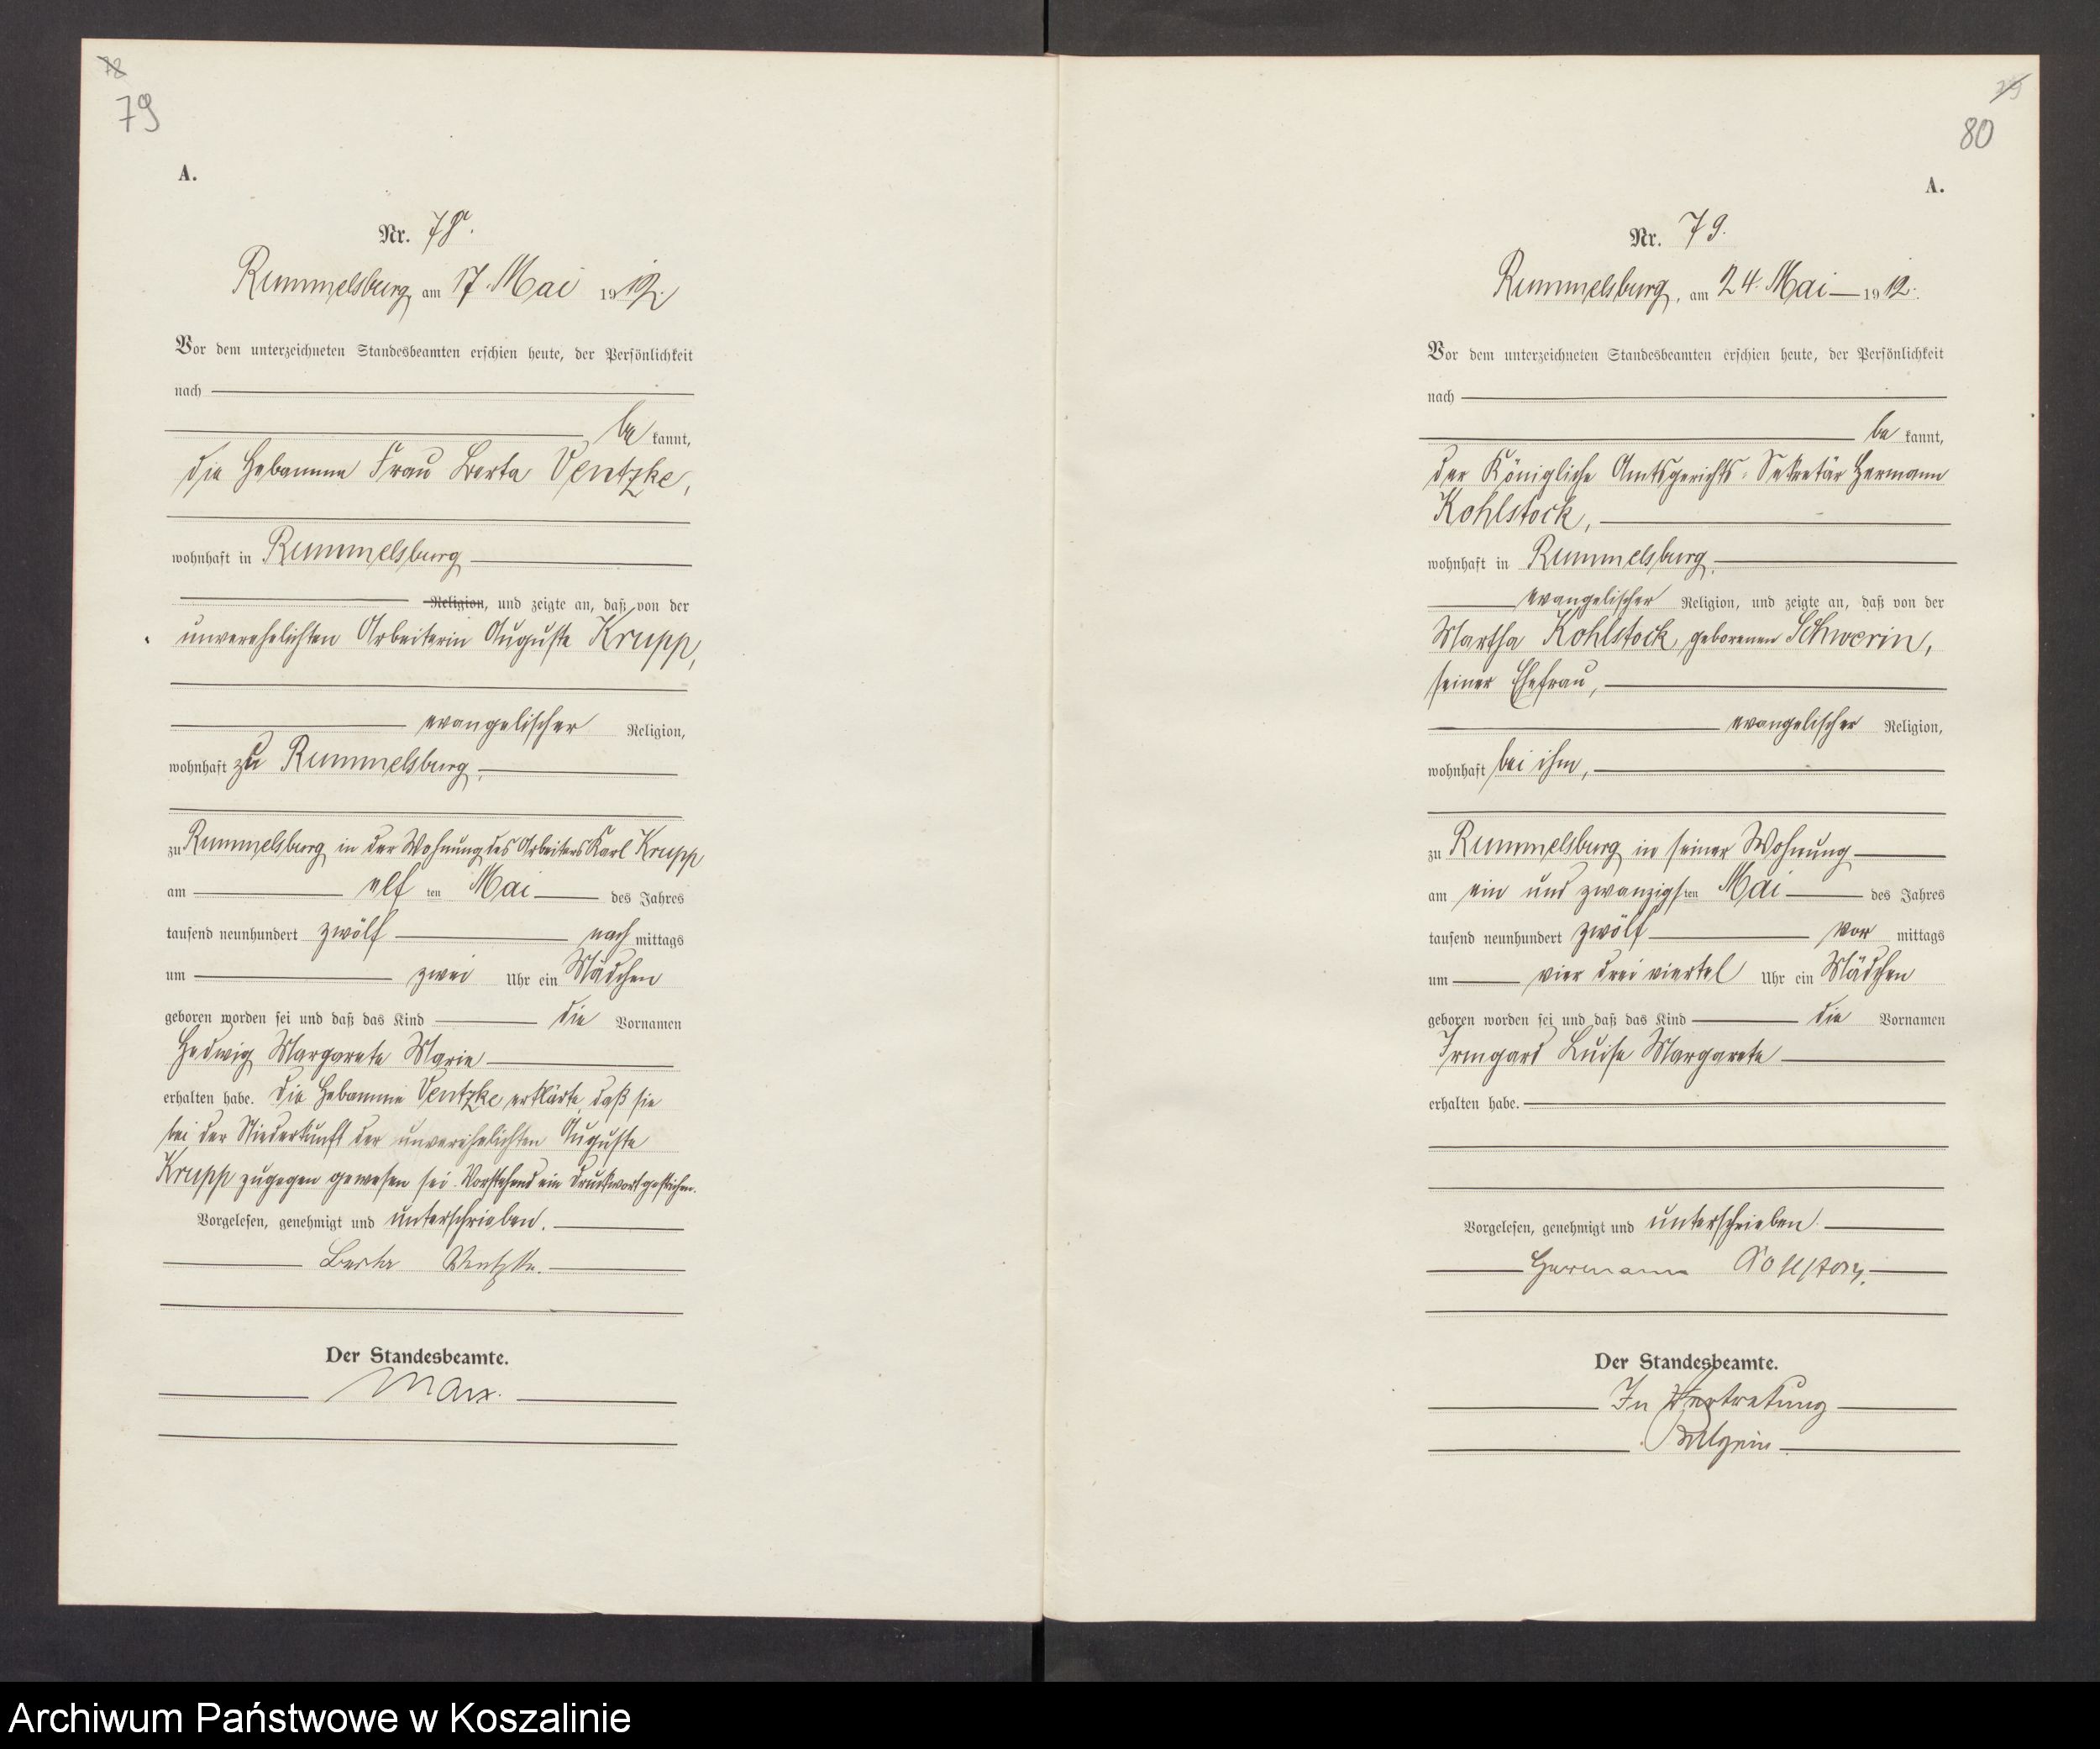 78
79
A.
Nr. 78.
Rummelsburg, am 17. Mai 1912.
Vor dem unterzeichneten Standesbeamten erschien heute, der Persönlichkeit
nach
be kannt,
die Hebamme Frau Berta Ventzke,
wohnhaft in Rummelsburg
Religion, und zeigte an, daß von der
unverehelichten Arbeiterin Auguste Krupp,
evangelischer Religion,
wohnhaft zu Rummelsburg,
zu Rummelsburg in der Wohnung des Arbeiters Karl Krupp
am elf ten Mai des Jahres
tausend neunhundert zwölf nach mittags
um zwei Uhr ein Mädchen
geboren worden sei und daß das Kind die Vornamen
Hedwig Margarete Marie
erhalten habe. Die Hebamme Ventzke erklärte, daß sie
bei der Niederkunft der unverehelichten Auguste
Krupp zugegen gewesen sei. Vorstehend ein Druckwort gestrichen.
Vorgelesen, genehmigt und unterschrieben.
Berta Ventzke.
Der Standesbeamte.
Marx.
79
80
A.
Nr. 79.
Rummelsburg, am 24. Mai 1912.
Vor dem unterzeichneten Standesbeamten erschien heute, der Persönlichkeit
nach
be kannt,
der Königliche Amtsgerichts-Sekretär Hermann
Kohlstock,
wohnhaft in Rummelsburg,
evangelischer Religion, und zeigte an, daß von der
Martha Kohlstock, geborenen Schwerin,
seiner Ehefrau,
evangelischer Religion,
wohnhaft bei ihm,
zu Rummelsburg in seiner Wohnung
am ein und zwanzigsten Mai des Jahres
tausend neunhundert zwölf vor mittags
um vier drei viertel Uhr ein Mädchen
geboren worden sei und daß das Kind die Vornamen
Irmgard Luise Margarete
erhalten habe.
Vorgelesen, genehmigt und unterschrieben.
Hermann Kohlstock.
Der Standesbeamte.
In Vertretung
Archiwum Państwowe w Koszalinie